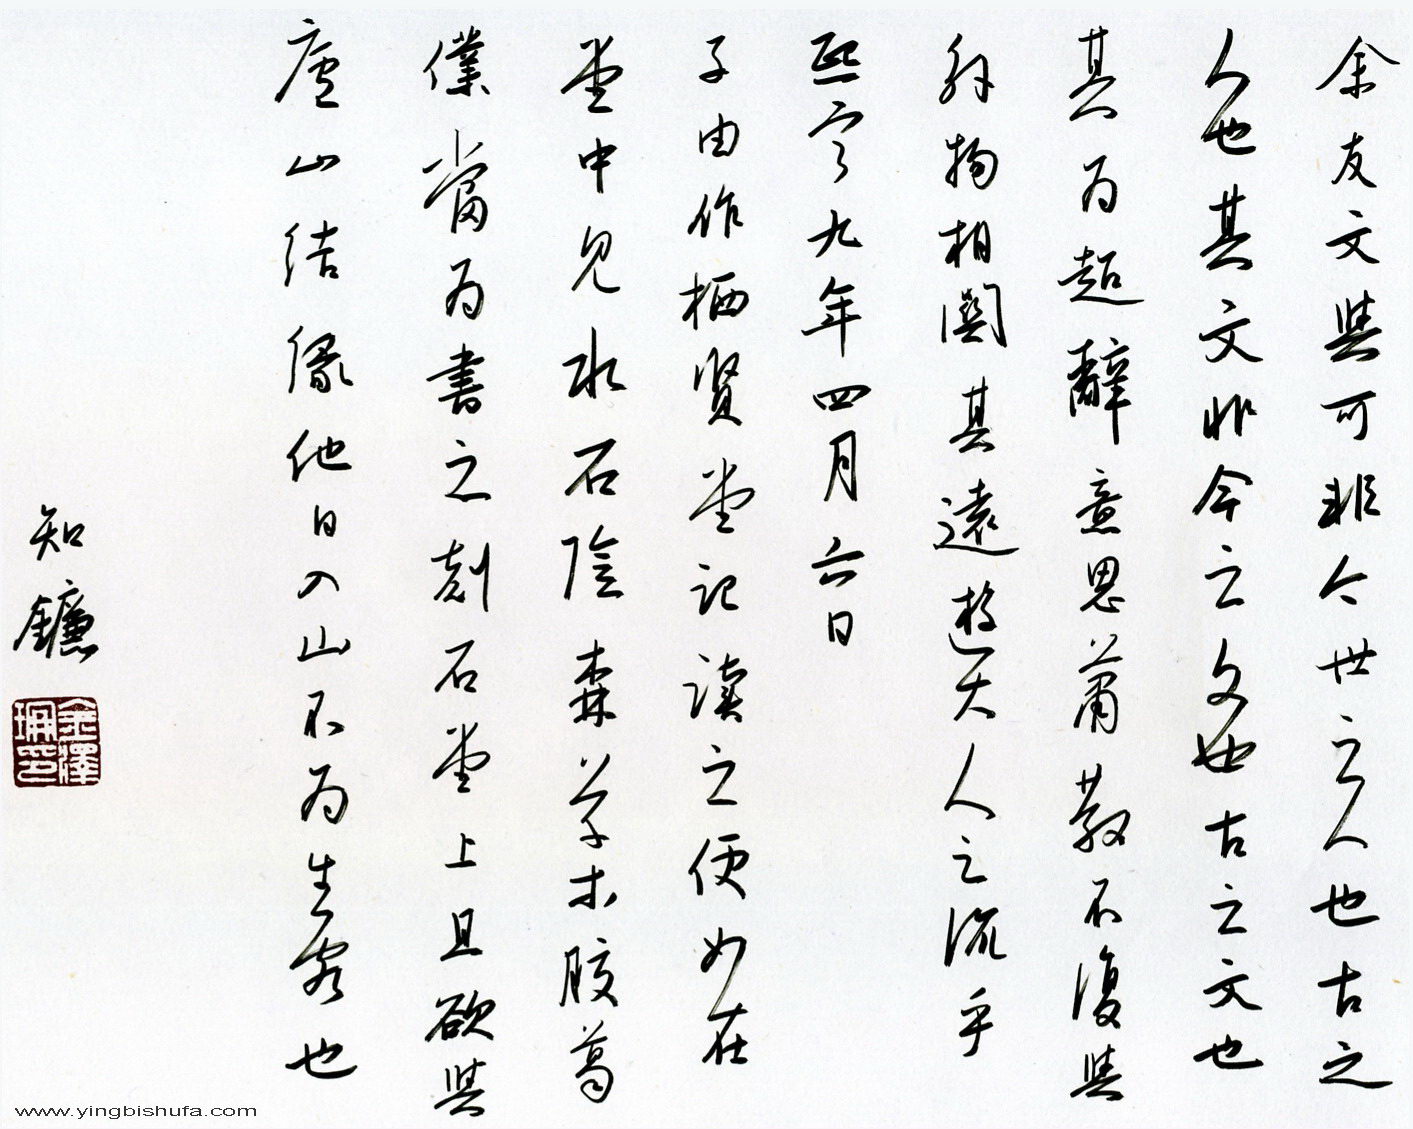 余友文與可非今世之人也古之
人也其文非今之文也古之文也
其为超辭意思蕭散不復與
外物相關其遠遊大人之流乎
熙寧九年四月六日
子由作栖賢堂记读之便如在
堂中見水石陰森草木胶葛
僕當为書之刻石堂上且欲與
廬山结緣他日入山不为生客也
知鐮
金澤
珊印
www.yingbishufa.com